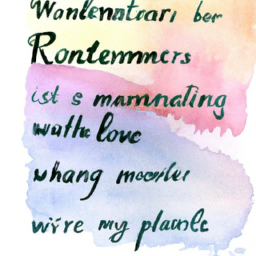 Wanlematoari ber
Rontemmers
ist s mamnating
wutta love
whang moorler
wire my planle